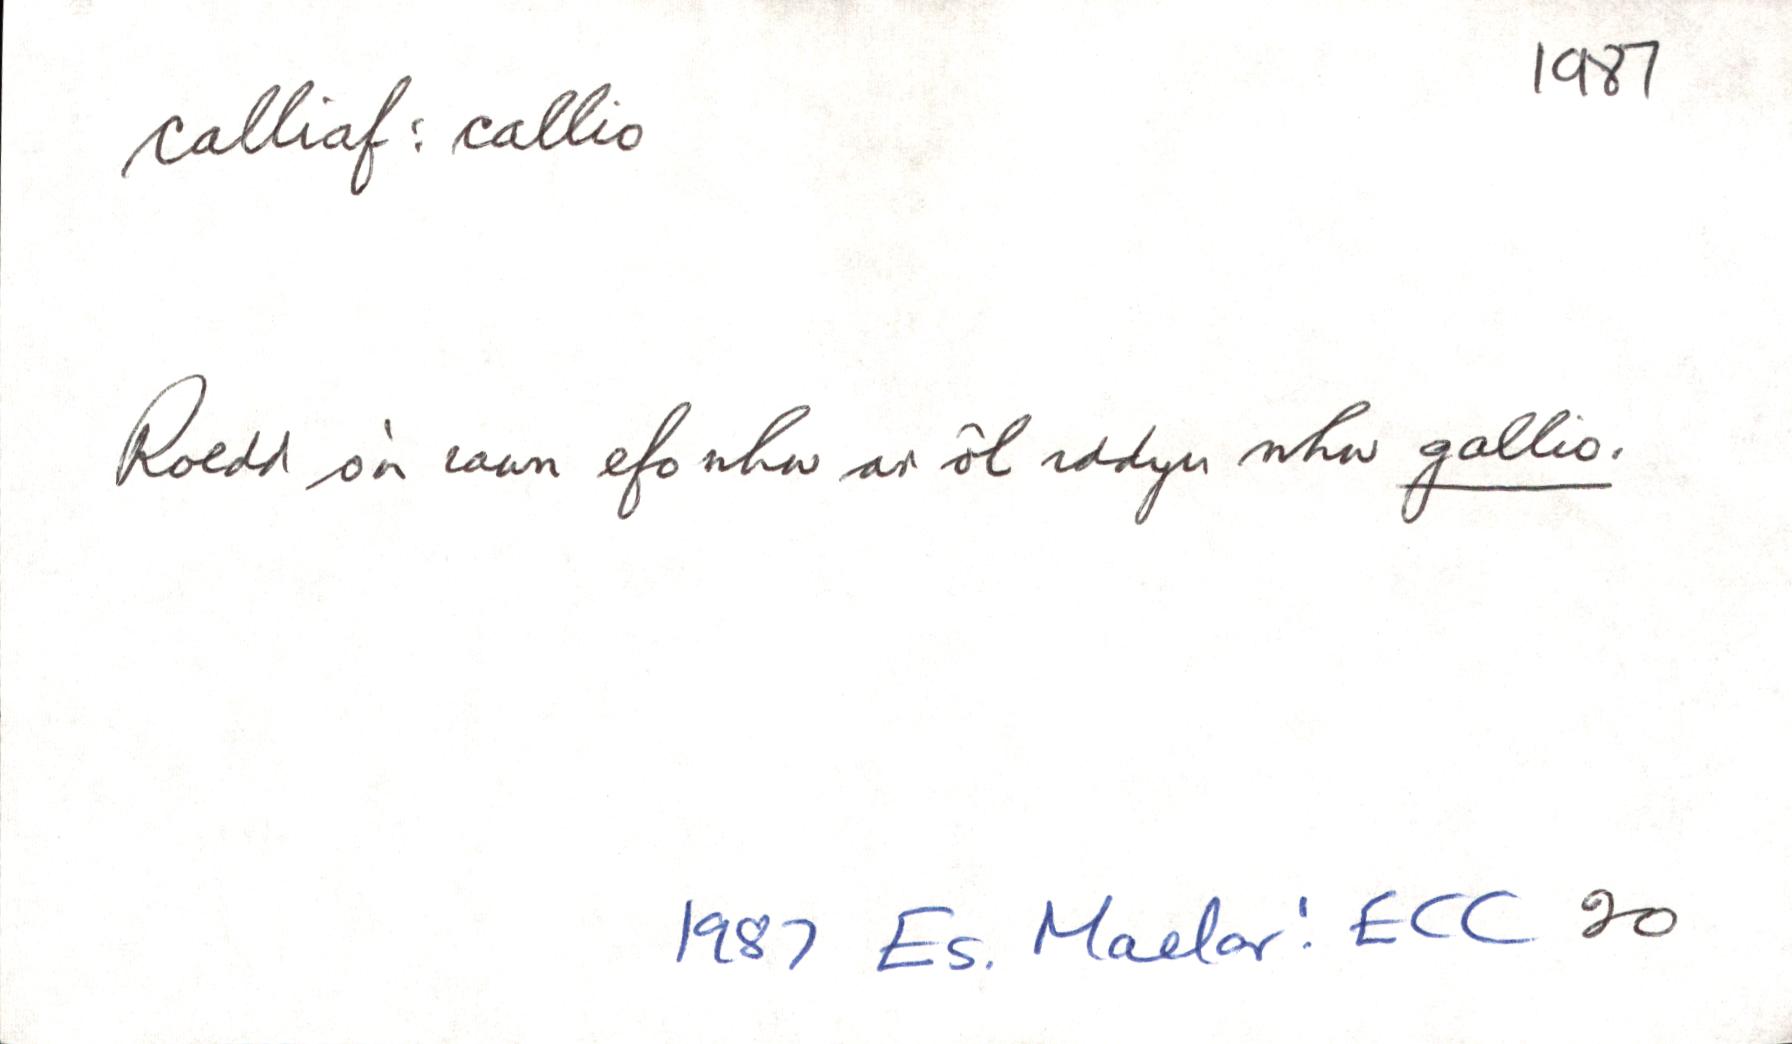 1987
calliaf: callio
Roedd o'n iawn efo nhw ar ôl iddyn nhw gallio.
1987 Es. Maelor: ECC 20